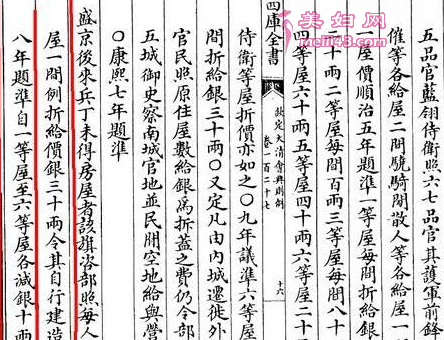 五品官藍翎侍衛六七品官其護軍前鋒
催等各給屋二間驍騎閒散人等各給屋一
一屋價順治五年題準一等屋每間折給銀
二十兩二等屋每間百兩三等屋每間八十
四等屋六十兩五等屋四十兩六等屋二十
四庫全書
欽定大清會典則例
卷一百二十七
十六
侍衛等屋折價亦如之〇九年議準六等屋
間折給銀三十兩〇又定凡由內城遷徙外
官民照原住屋數給銀爲折蓋之費仍令部
五城御史察南城官地並民閒空地給與營
〇康熙七年題準
盛京後來兵丁未得房屋者該旗咨部照每人
屋一間例折給價銀三十兩令其自行建造
八年題準自一等屋至六等屋各減銀十兩
美如网
meili63.cn